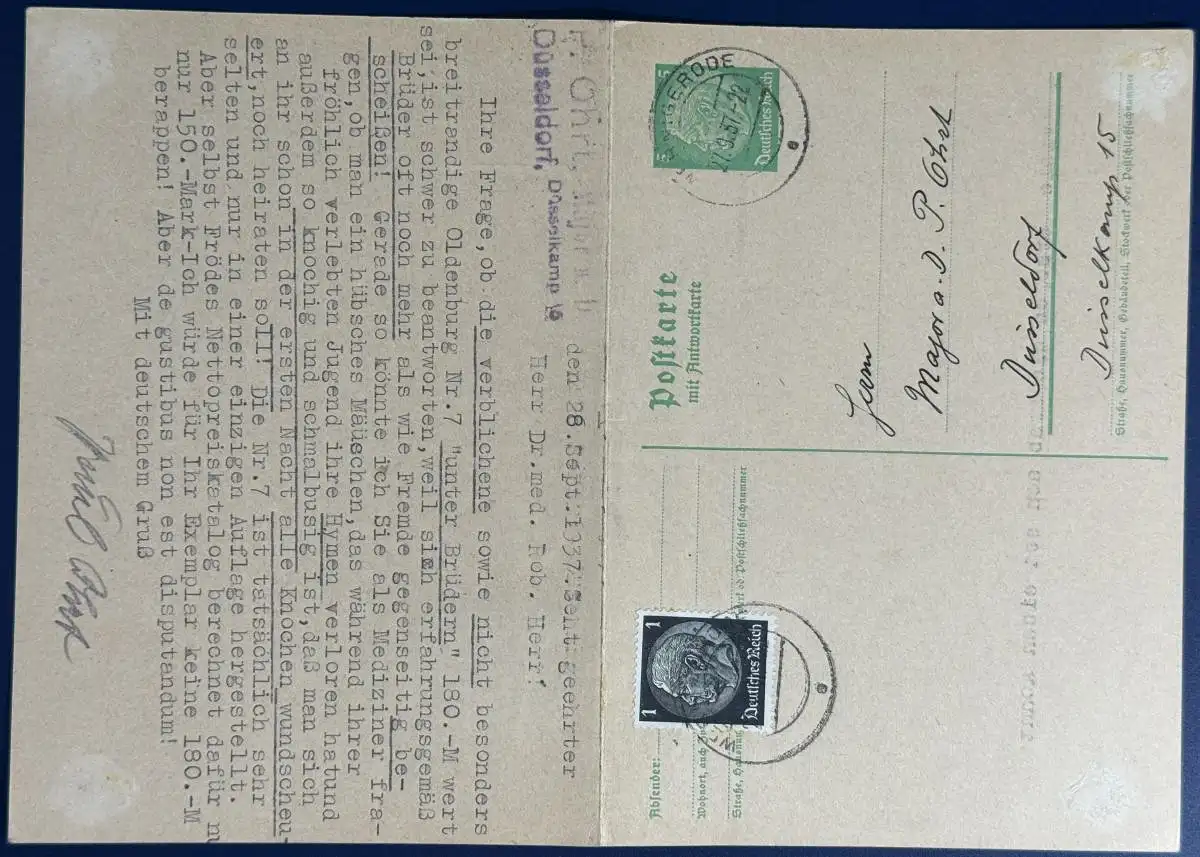 P. Ohrt, Major a. D.
Düsseldorf, Düsselkamp 15
den 28.Sept.1937.Sehr geehrter
Herr Dr.med. Rob. Herr!
Ihre Frage,ob die verblichene sowie nicht besonders
breitrandige Oldenburg Nr.7 "unter Brüdern" 180.-M wert
sei,ist schwer zu beantworten,weil sich erfahrungsgemäß
Brüder oft noch mehr als wie Fremde gegenseitig be-
scheißen! Gerade so könnte ich Sie als Mediziner fra-
gen,ob man ein hübsches Mäuschen,das während ihrer
fröhlich verlebten Jugend ihre Hymen verloren hatund
außerdem so knochig und schmalbusig ist,daß man sich
an ihr schon in der ersten Nacht alle Knochen wundscheu-
ert,noch heiraten soll! Die Nr.7 ist tatsächlich sehr
selten und nur in einer einzigen Auflage hergestellt.
Aber selbst Frödes Nettopreiskatalog berechnet dafür n
nur 150.-Mark-Ich würde für Ihr Exemplar keine 180.-M
berappen! Aber de gustibus non est disputandum!
Mit deutschem Gruß
Postkarte
mit Antwortkarte
5 5
Deutsches Reich
27.9.37.-22
Herrn
Major a. D. P. Ohrt
Düsseldorf
Düsselkamp 15
Straße, Hausnummer, Gebäudeteil, Stockwerk oder Postschließfachnummer
Absender:
Wohnort, auch
Straße, Hausnum
od. Postschließfachnummer
1 1
Deutsches Reich